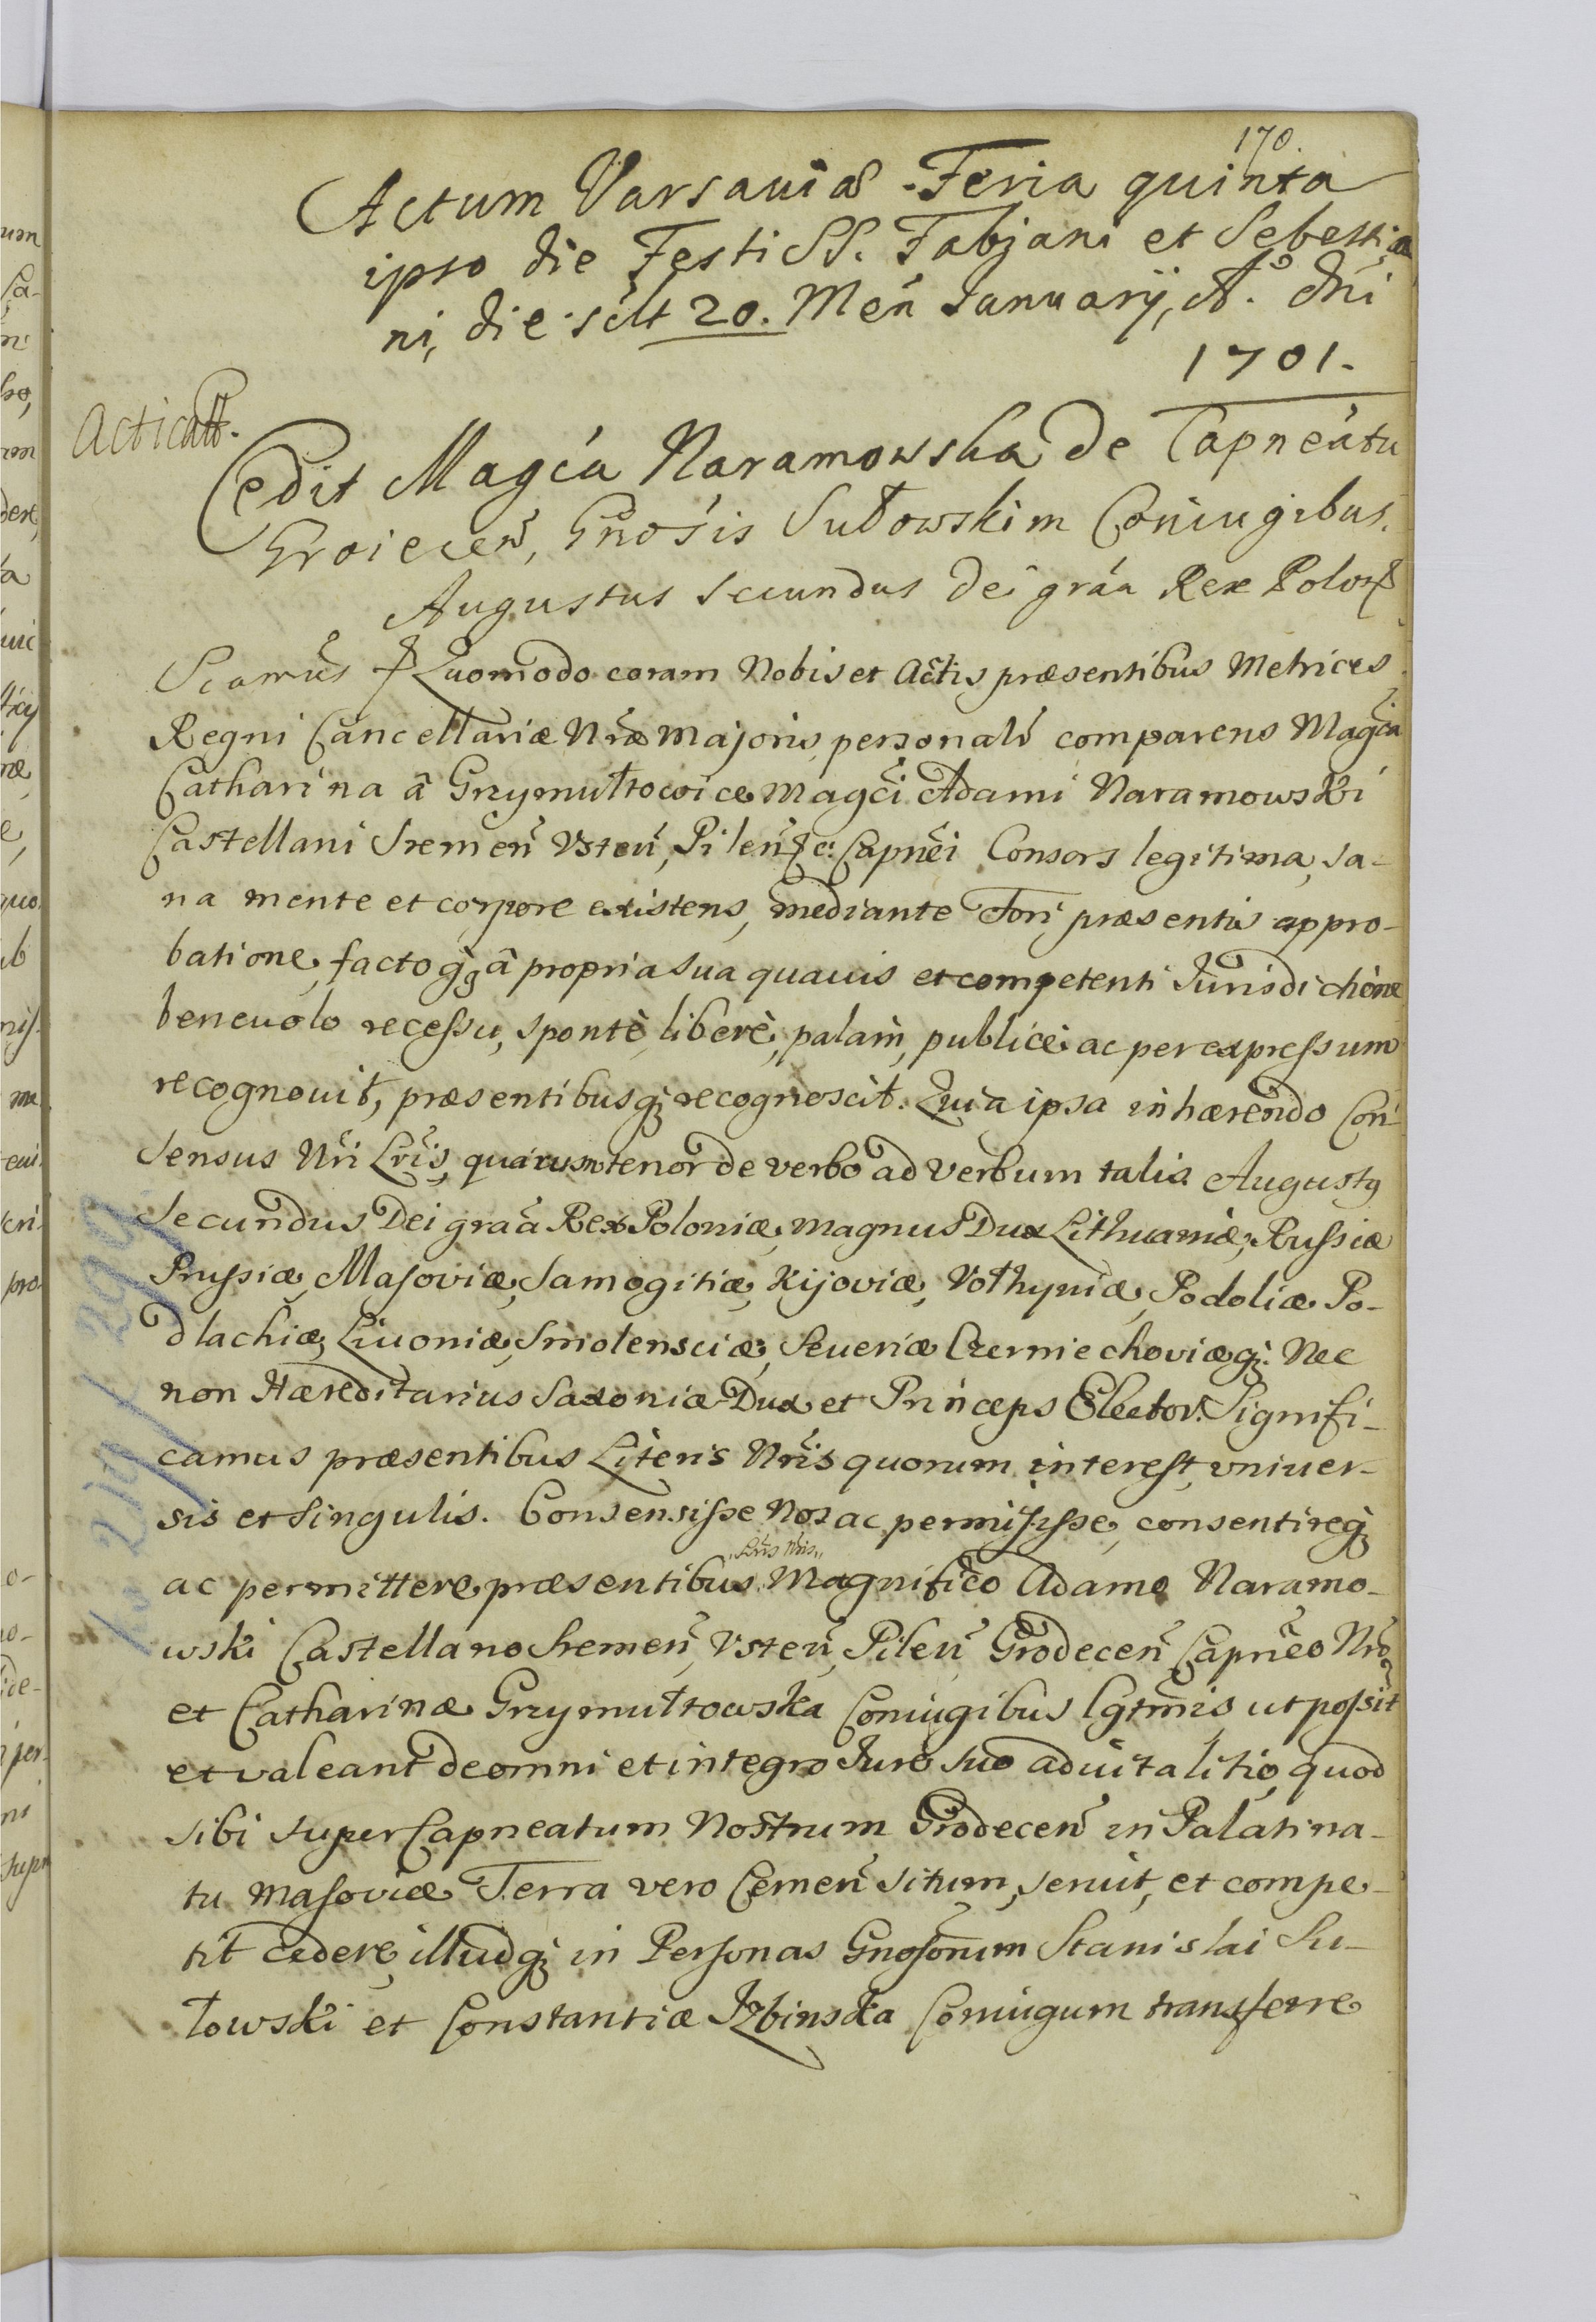 170.
Actum Varsaviæ Feria quinta
ipso die Festi SS. Fabjani et Sebestia
ni, die sclt 20. Men Januarij, A.o Dni
1701.
Acticatt.
Cedit Magca Naramowska de Capneatu
Groiecen, Gnosis Sułowskim Coniugibus.
Augustus Secundus Dei graa Rex Polon
Quomodo coram Nobis et Actis præsentibus Metrices
Regni Cancellariæ Nræ Majoris personalr comparens Magca
Catharina â Grzymułtowice Magci Adami Naramowski
Castellani Sremen Usten, Pilen &c. Capnei Consors legitima, sa-
na mente et corpore existens, mediante Fori præsentis appro-
batione, factoq3 â propria sua quavis et competenti Jurisdictione
benevolo recessu, spontè, liberè, palàm, publicè ac per expressum
recognovit, præsentibusq3 recognoscit. Quia ipsa inhærendo Con-
sensus Nri Lris, quarum tenor de verbo ad verbum talis Augustus
Secundus Dei graa Rex Poloniæ, Magnus Dux Lithuaniæ, Russiæ
Prussiæ, Masoviæ, Samogitiæ, Kijoviæ, Vołhyniæ, Podoliæ Po-
dlachiæ, Livoniæ, Smolensciæ, Severiæ Czerniechoviæq3. Nec
non Hæreditarius Saxoniæ Dux et Princeps Elector. Signifi-
camus præsentibus Literis Nris quorum interest, vniver-
sis et singulis. Consensisse Nos ac permisisse, consentireq3
Lris Nris
ac permittere præsentibus Magnifico Adamo Naramo-
wski Castellano Sremen, Usten, Pilen Grodecen Capneo Nro
et Catharinæ Grzymułtowska Coniugibus lgtmis ut possit
et valeant de omni et integro Jure suo advitalitio, quod
sibi super Capneatum Nostrum Grodecen in Palatina-
tu Masoviæ Terra vero Cernen situm, servit, et compe-
tit cedere, illudq3 in Personas Gnosorum Stanislai Su-
łowski et Constantiæ Izbinska Coniugum transferre